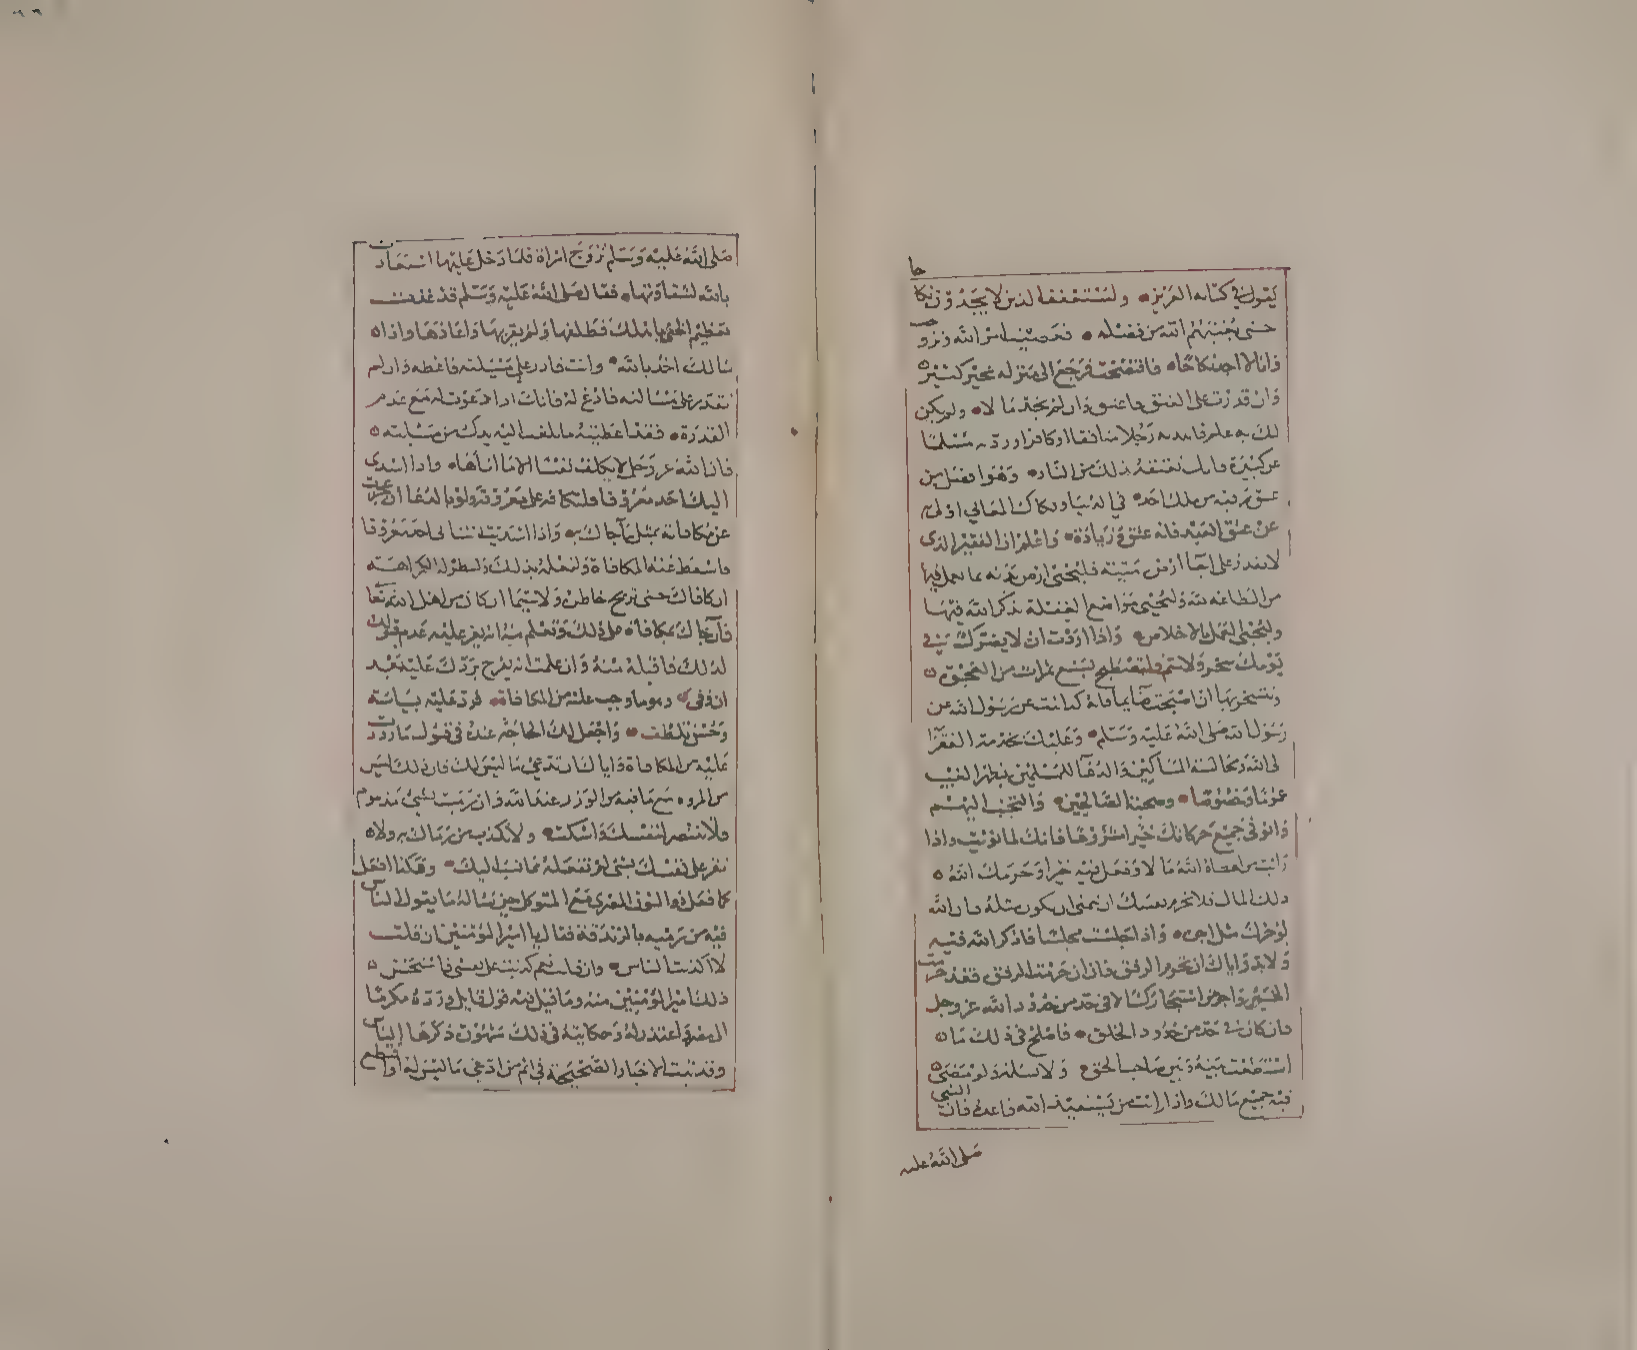 يقول في كتابه العزيز وليستعفف الذين لا يجدون نكاحا
حتى يغنيهم الله من فضله فعرضت امر الله وزو
وانا لا اجد نكاحا فافتضحت فرجع الى منزله بخير كثير
وان قدرت على العتق فاعتق وان لم تجد مالا ولم يكن
لك به علم فاهد به رجلا منافقا او كافرا او رد به مسلما
عن كبيرة فانك تعتقه بذلك من النار وهو افضل من
عتق رقبة من ملك احد في الدنيا وفكاك العاني اولى
من عتق العبد فانه عتق وزيادة واعلم ان الفقير الذي
لا يقدر على احيا ارض ميتة فليحيي ارض بدنه بما يعمل فيها
من الطاعة لله وليحيي مواضع الغفلة بذكر الله فيها
وليحيي العمل بالاخلاص واذا اردت ان لا يضرك في
يومك سحر ولا سم فلتصطبح بسبع تمرات من العجوة
وتتسحر بها ان اصبحت صايما فانه كذا ثبت عن رسول الله عن
رسول الله صلى الله عليه وسلم وعليك بخدمة الفقرا
الى الله ومجالسة المساكين والدعا للمسلمين بظهر الغيب
عموما وخصوصا وصحبة الصالحين والتحبب اليهم
وانو في جميع حركاتك خيرا مشروعا فانك لما نويت واذا
رايت من اعطاه الله مالا وفعل فيه خيرا وحرمك الله
ذلك المال فلا تحرم نفسك ان تتمنى ان يكون مثله فان الله
يؤجرك مثل اجره واذا جلست مجلسا فاذكر الله فيه
ولا بد واياك ان تحرم الرفق فانك ان حرمت الرفق فقد حرمت
الخير واجر من استجارك الا في حد من حدود الله عز وجل
فان كان في حد من حدود الخلق فاصلح في ذلك ما
استطعت بينه وبين صاحب الحق ولا تسلمه ولو تمضي
فيه جميع مالك واذا رايت من يستعيذ بالله فاعذه فان النبي
صلى الله عليه
صلى الله عليه وسلم تزوج امراة فلما دخل عليها استعاذت
بالله لشقاوتها فقال صلى الله عليه وسلم قد عذت
بعظيم الحقي باهلك فطلقها ولم يقربها واعاذها واذا
سالك احد بالله وانت قادر على مسئلته فاعطه وان لم
تقدر على مسالته فادع له فانك اذا دعوت له مع عدم
القدرة فقد اعطيته ما بلغت اليه يدك من مسئلته
فان الله عز وجل لا يكلف نفسا الا ما اتاها واذا اسدى
اليك احد معروفا فلتكافه على معروفه ولو بالدعا ان عجزت
عن مكافاته بمثل ما جاك به واذا اسديت انت الى احد معروفا
فاسقط عنه المكافاة ولتعلمه بذلك وتظهر له الكراهة
ان كافاك حتى تريح خاطره ولا سيما ان كان من اهل الله تعالى
فان جاك بمكافاة على ذلك وتعلم منه انه يعز عليه عدم قبولك
لذلك فاقبله منه وان علمت انه يفرح بردك عليه بعد
ان وفى هو ما وجب عليه من المكافاة فرد عليه بسياسة
وحسن تلطف واجعل لك الحاجة عنده في قبول ما رددت
عليه من المكافاة واياك ان تدعي ما ليس لك فان ذلك ليس
من المروة مع ما فيه من الوزر عند الله وان رميت بشيء مذموم
فلا تنتصر لنفسك واسكت ولا تكذب من رماك به ولا
تقر على نفسك بشي لم تفعله مما نسب اليك وهكذا افعل
كما فعل ذو النون المصري مع المتوكل حين ساله ما يقول الناس
فيه من رميه بالزندقة فقال يا امير المؤمنين ان قلت
لا اكذبت الناس وان قلت نعم كذبت على نفسي فاستحسن
ذلك امير المؤمنين منه وما قبل فيه قول قايل ورده مكرما
الى مصر واعتذر له وحكايته في ذلك مشهورة ذكرها الناس
وقد ثبتت الاخبار الصحيحة في اثم من ادعى ما ليس له او اقتطع